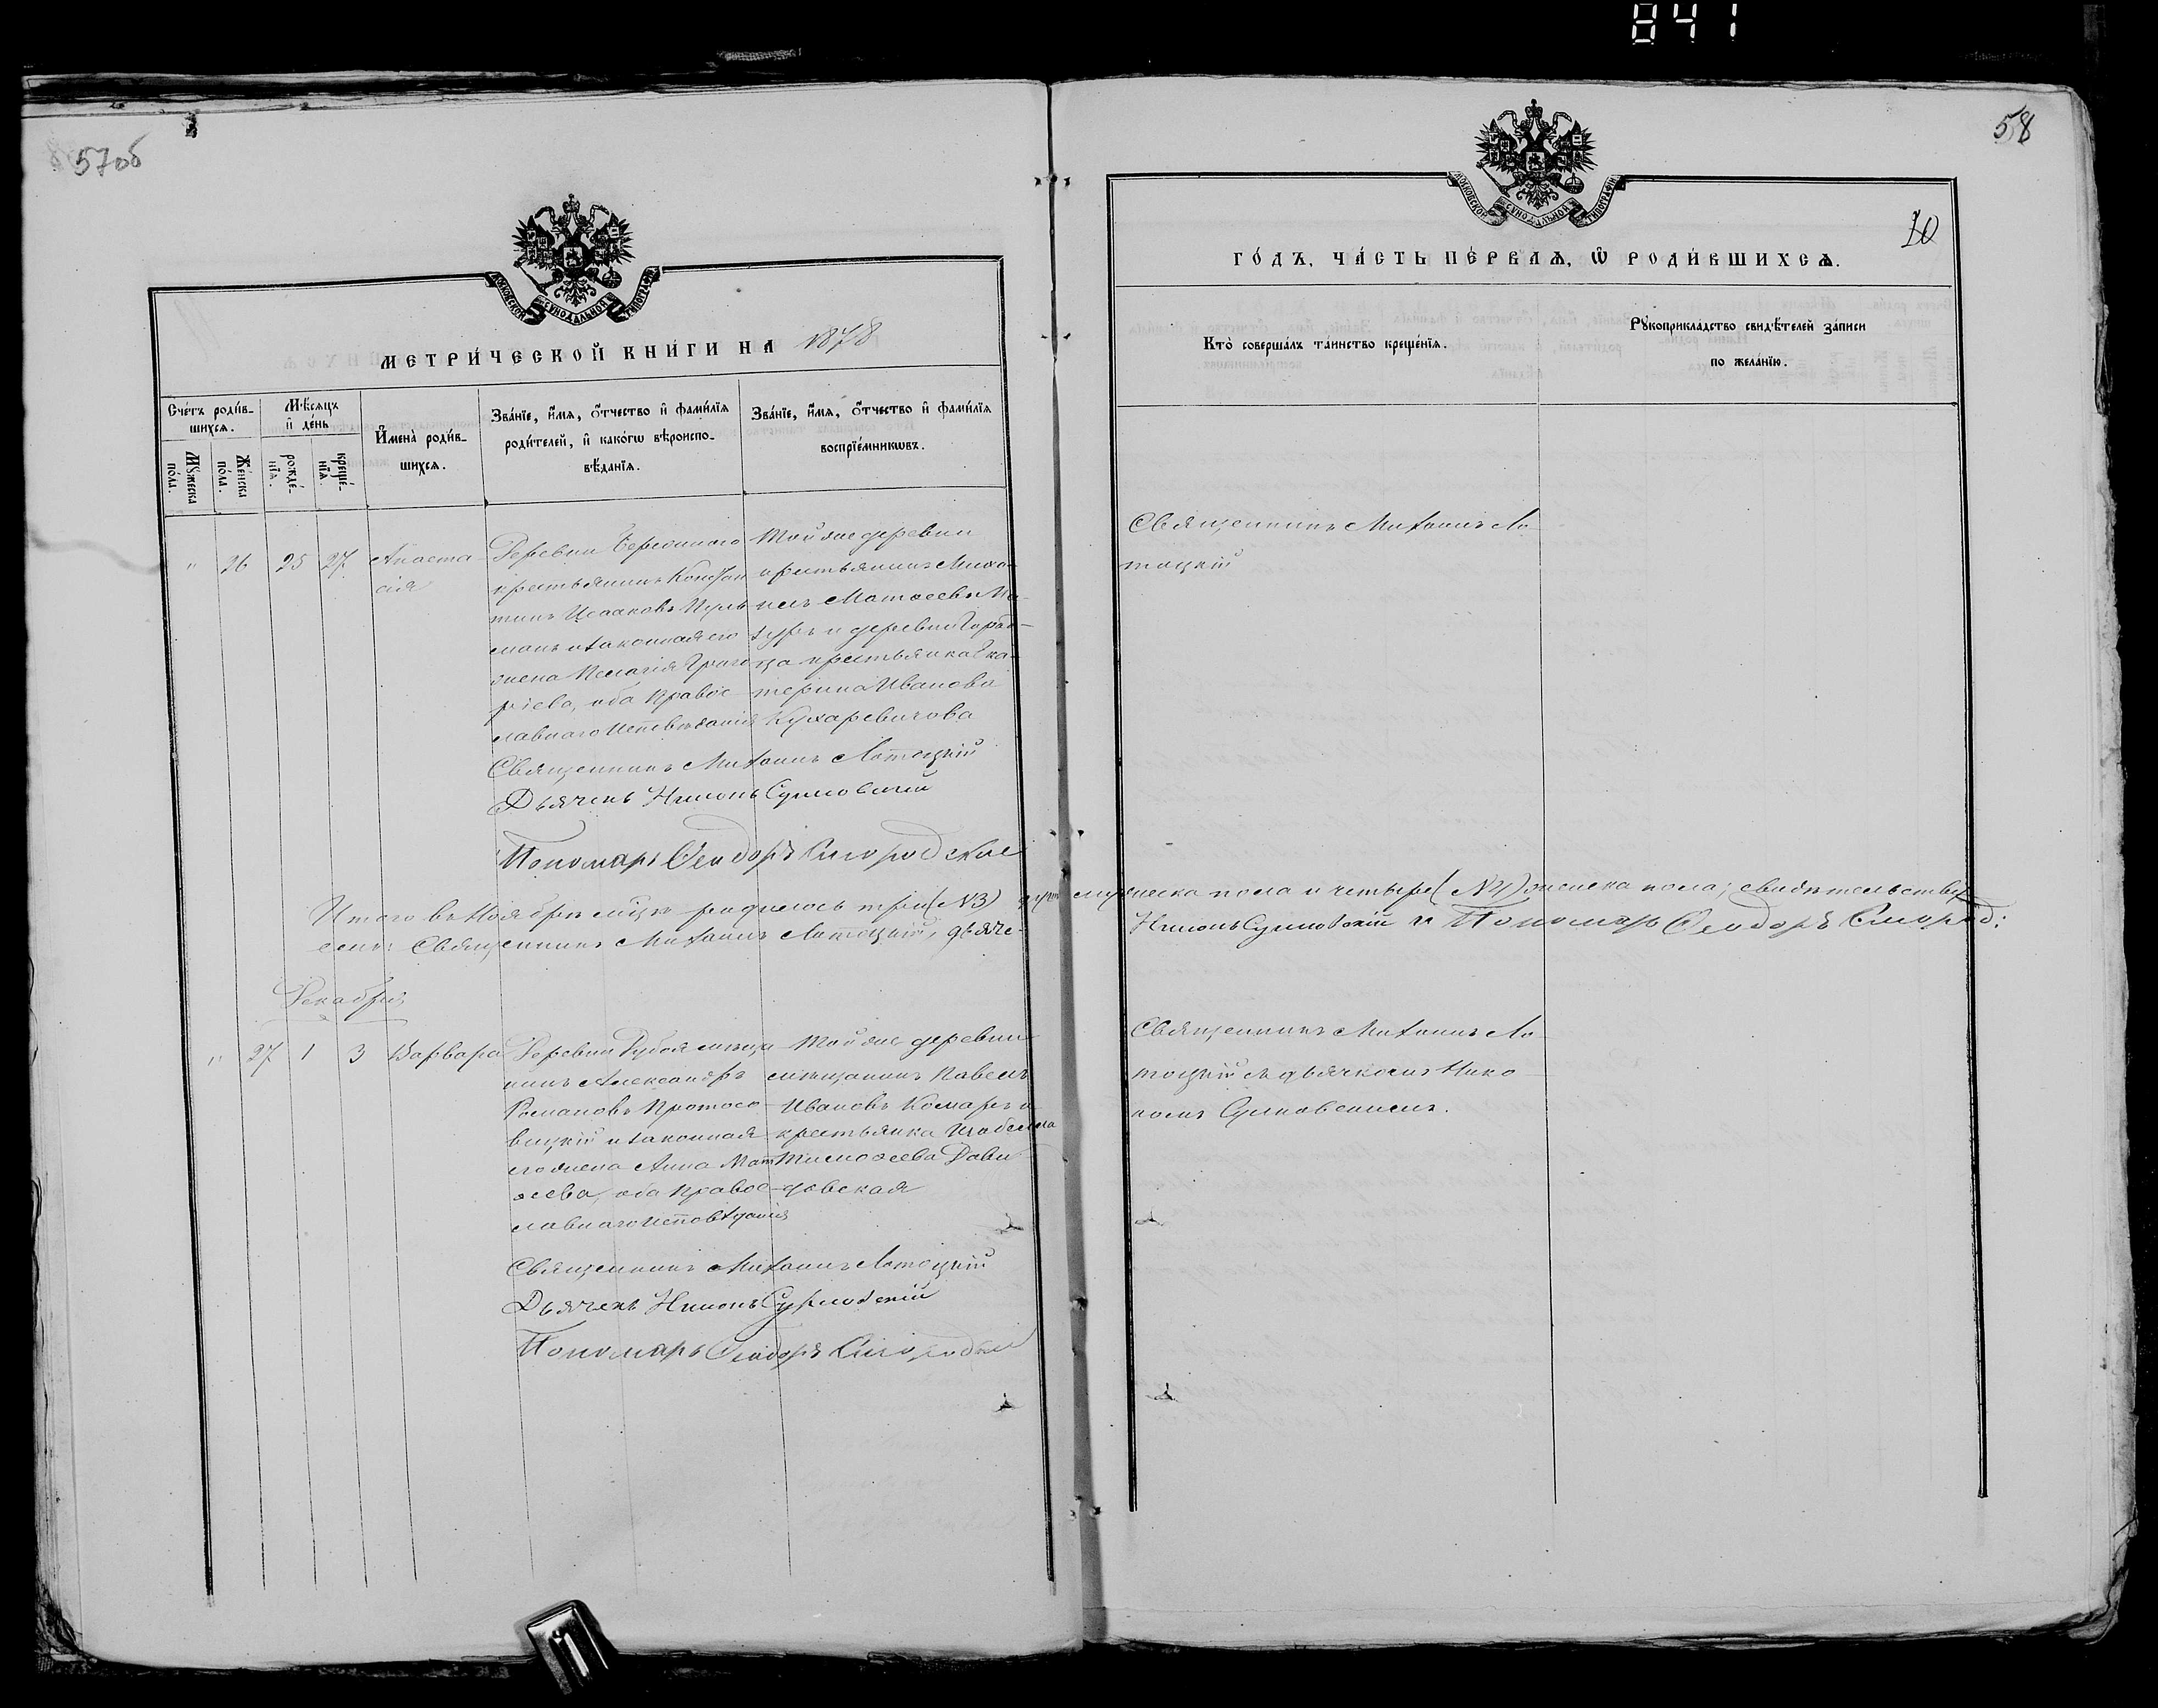 841
57об
58
10
МОСКОВСКОЙ СѴНОДАЛЬНОЙ ТИПОГРАФІИ
МЕТРИ́ЧЕСКОЙ КНИ́ГИ НА 1878
Сче́тъ роди́в-
шихсѧ.
Мѹ́жеска по́ла.
Же́нска по́ла.
Мѣ́сѧцъ
и҆ де́нь
рожде́-
нїѧ.
креще́-
нїѧ.
И҆мена̀ роди́в-
шихсѧ.
Зва́нїе, и҆́мѧ, ѻ҆́тчество и҆ фамі́лїѧ
роди́телей, и҆ како́гѡ вѣроиспо-
вѣ́данїѧ.
Зва́нїе, и҆́мѧ, ѻ҆́тчество и҆ фамі́лїѧ
воспрїе́мникѡвъ.
" 26 25 27 Анаста-
сія
Деревни
крестьянинъ Констан
тинъ Исааковъ Пуль
манъ и законная его
жена Пелагія Григо
ріева, оба Правос
лавнаго исповѣданія
Той же деревни
крестьянинъ Миха-
илъ Матѳеевъ Ма-
зуръ и деревни
крестьянка Ека-
терина Иванова
Кухаревичова
Священникъ Михаилъ Лотоцкій
Дьячекъ Никонъ
Пономарь Ѳеодоръ
Итого въ Ноябрѣ мѣцѣ родилось три (№3) мужеска пола и четыре (№4) женска пола; свидѣтельству
емъ: Священникъ Михаилъ Лотоцкій, дьяче-
Никонъ и Пономарь Ѳеодоръ
Декабрь
" 27 1 3 Варвара
Деревни Дубоя мѣща
нинъ Александръ
Романовъ Протасо
вицкій и законная
его жена Анна Мат
ѳеева, оба Правос
лавнаго исповѣданія
Той же деревни
мѣщанинъ Павелъ
Ивановъ Комаръ и
крестьянка
Тимоѳеева Дави
довская
Священникъ Михаилъ Лотоцкій
Дьячекъ Никонъ
Пономарь Ѳеодоръ
МОСКОВСКОЙ СѴНОДАЛЬНОЙ ТИПОГРАФІИ
ГО́ДЪ, ЧА́СТЬ ПЕ́РВАѦ, Ѽ РОДИ́ВШИХСѦ.
Кто̀ соверша́лъ та́инство креще́нїѧ.
Рꙋкоприкла́дство свидѣ́телей за́писи
по жела́нїю.
Священникъ Михаилъ Ло
тоцкій
Священникъ Михаилъ Ло
тоцкій съ дьячкомъ Нико
номъ